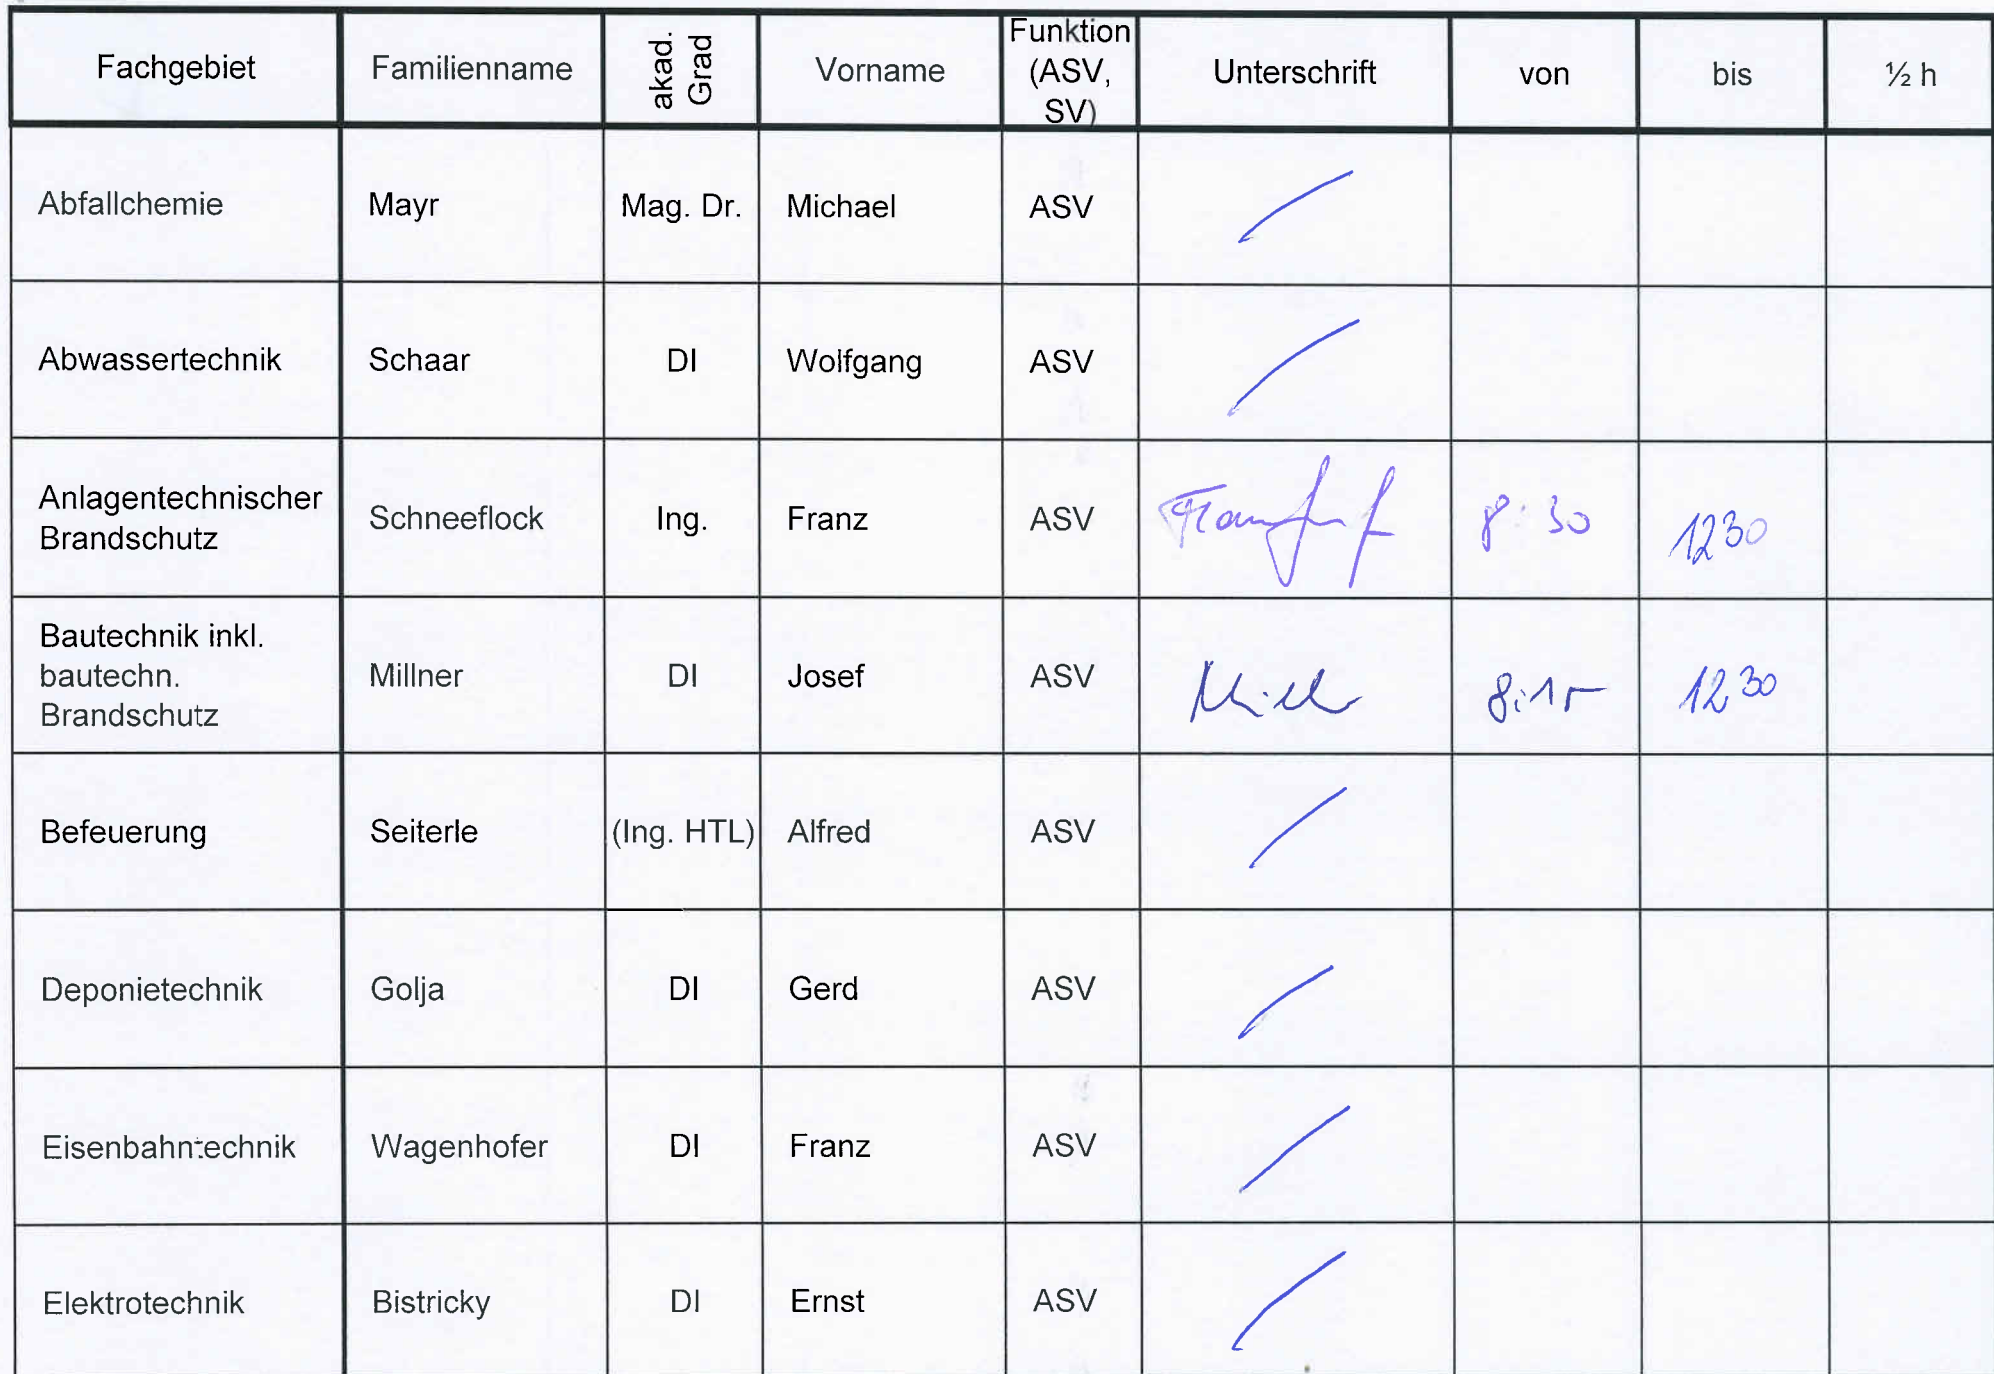 Fachgebiet Familienname akad. Grad Vorname Funktion (ASV, SV) Unterschrift von bis ½ h
Abfallchemie Mayr Mag. Dr. Michael ASV
Abwassertechnik Schaar DI Wolfgang ASV
Anlagentechnischer Brandschutz Schneeflock Ing. Franz ASV 8:30 1230
Bautechnik inkl. bautechn. Brandschutz Millner DI Josef ASV 8:15 1230
Befeuerung Seiterle (Ing. HTL) Alfred ASV
Deponietechnik Golja DI Gerd ASV
Eisenbahntechnik Wagenhofer DI Franz ASV
Elektrotechnik Bistricky DI Ernst ASV